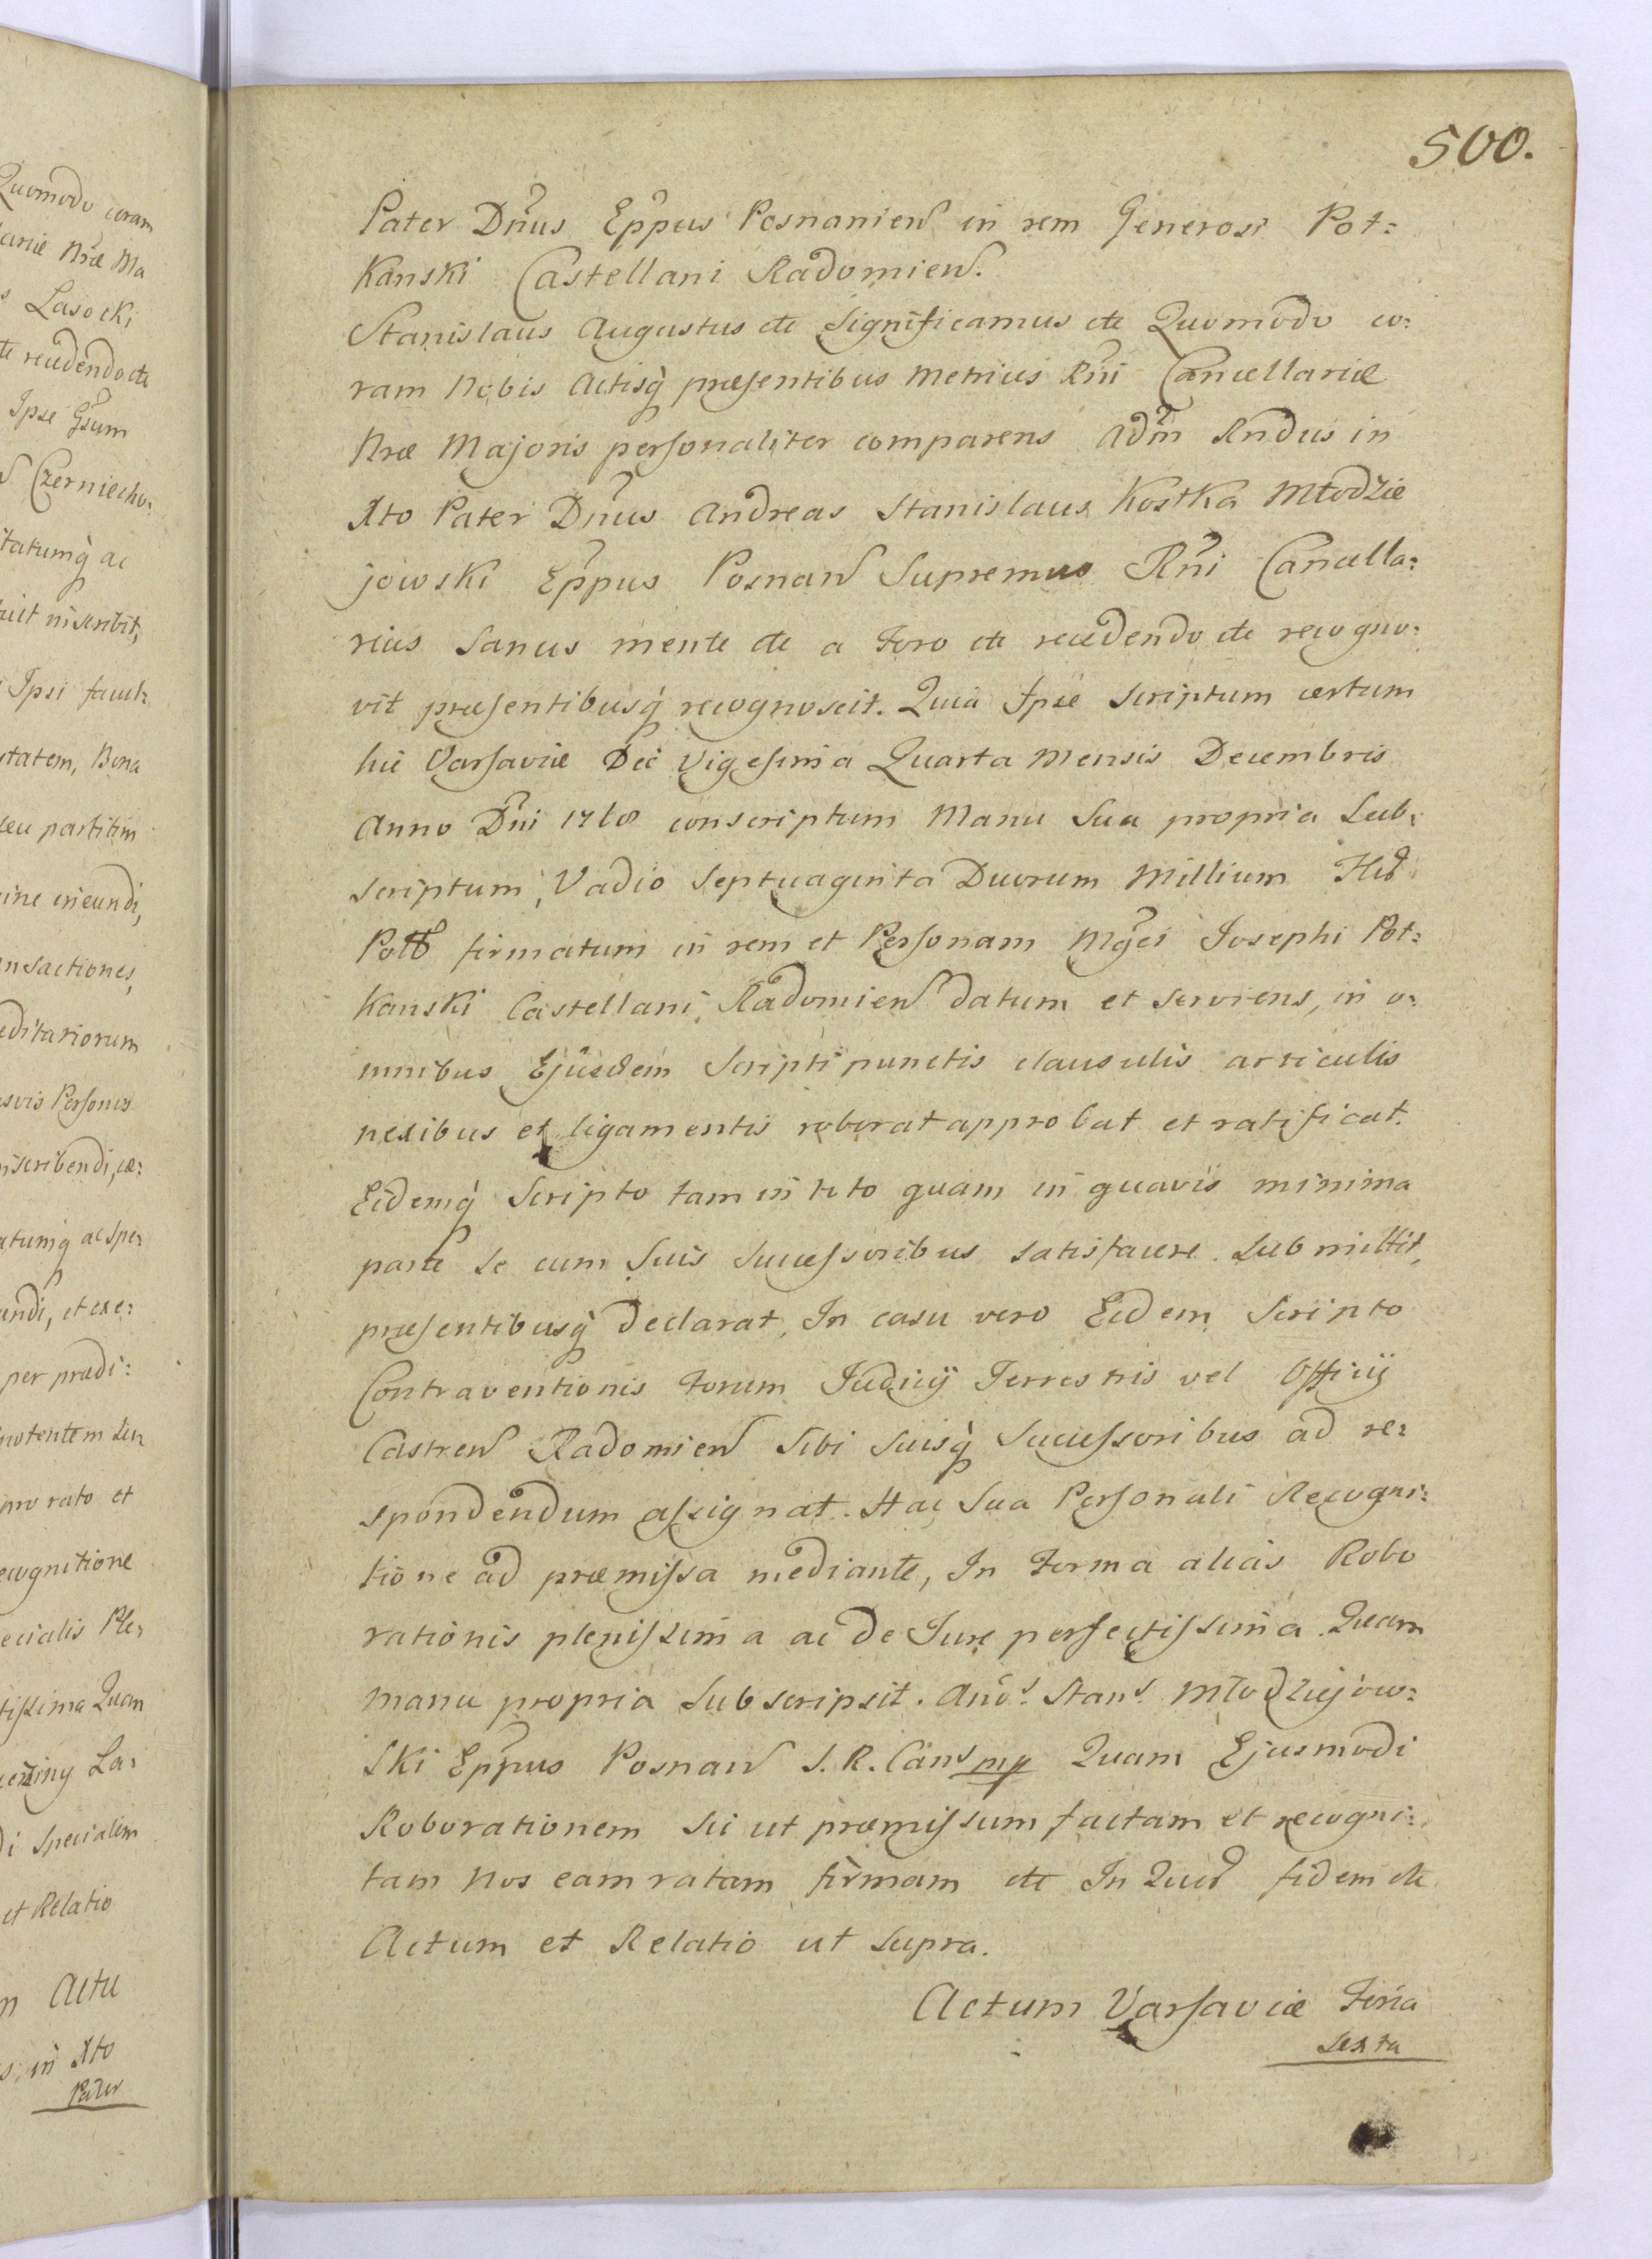 Quomodo coram
Nræ Ma
Lasocki
recedendo etc
Ipse Gsum
Czerniecho:
tatumq̀ ac
inscribit,
Ipsi facul:
tatem, Bona
seu partitim
ineundi,
editariorum
svis Personis
atumq̀ ac spe:
andi, et exe:
per prædi:
pro rato et
ecognitione
ecialis Ple:
tissima Quam
La:
di specialem
et Relatio
Actu
in Xto
Pater
500.
Pater Dnus Eppus Posnanien in rem Generosi Pot:
Kanski Castellani Radomien.
Stanislaus Augustus etc Significamus etc Quomodo co:
ram Nobis Actisq̀ præsentibus Metrices Rni Cancellariæ
Nræ Majoris personaliter comparens Adm Rndus in
Xto Pater Dnus Andreas Stanislaus Kostka Młodzie
jowski Eppus Posnan Supremus Rni Cancella:
rius Sanus mente etc a Foro etc recedendo etc recogno:
vit præsentibusq̀ recognoscit. Quia Ipse Scriptum certum
hic Varsaviæ Die Vigesima Quarta Mensis Decembris
Anno Dni 1768 conscriptum Manu Sua propria Sub:
scriptum, Vadio Septuaginta Duorum Millium
firmatum in rem et Personam Mgci Josephi Pot:
Kanski Castellani Radomien datum et serviens, in o:
mnibus Ejusdem Scripti punctis clausulis articulis
nexibus et ligamentis roborat approbat et ratificat.
Eidemq̀ Scripto tam in toto quam in quavis minima
parte se cum Suis Successoribus satisfacere submittit,
præsentibusq̀ declarat, In casu vero Eidem Scripto
Contraventionis Forum Judicij Terrestris vel Officij
Castren Radomien Sibi Suisq̀ Successoribus ad re:
spondendum assignat. Hac Sua Personali Recogni:
tione ad præmissa mediante, In Forma alias Robo
rationis plenissima ac de Jure perfectissima. Quam
manu propria Subscripsit. And: Stan: Młodziejow:
ski Eppus Posnan S. R. Can mp Quam Ejusmodi
Roborationem Sic ut præmissum factam et recogni:
tam Nos eam ratam firmam etc In Quor fidem etc
Actum et Relatio ut Supra.
Actum Varsaviæ Feria
Sexta